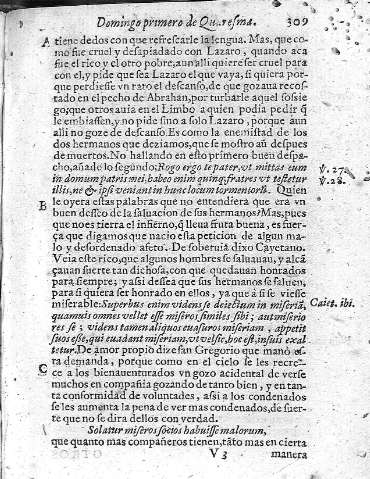 Domingo primero de Quaresma. 309
A tiene dedos con que refrescarle la lengua. Mas, que co-
mo fue cruel y desapiadado con Lazaro, quando aca
fue el rico y el otro pobre, aun alli quiere ser cruel para
con el, y pide que sea Lazaro el que vaya, si quiera por-
que perdiesse vn raro el descanso, de que gozaua recos-
tado en el pecho de Abrahan, por turbarle aquel sossie-
go; que otros auia en el Limbo aquien podia pedir q̃
le embiassen, y no pide sino a solo Lazaro, porque aun
alli no goze de descanso. Es como la enemistad de los
dos hermanos que deziamos, que se mostro aũ despues
de muertos. No hallando en esto primero buen despa-
cho, añade lo segundo; Rogo ergo te pater, vt mittas eum
in domum patris mei, habeo enim quinq; fratres vt testetur
illis, ne & ipsi veniant in hunc locum tormentorũ. Quien
V. 27.
V. 28.
le oyera estas palabras que no entendiera que era vn
B buen desseo de la saluacion de sus hermanos? Mas, pues
que no es tierra el infierno, q̃ lleua fruta buena, es fuer-
ça que digamos que nacio esta peticion de algun ma-
lo y desordenado afeto. De soberuia dixo Cayetano.
Veia este rico, que algunos hombres se saluauan, y alcã
çauan suerte tan dichosa, con que quedauan honrados
para siempre; y assi dessea que sus hermanos se saluen,
para si quiera ser honrado en ellos, ya que a si se viesse
miserable. Superbus enim videns se deiectum in miseriã,
Caiet. ibi.
quamuis omnes vellet esse miseros similes sibi; aut miserio
res se; videns tamen aliquos euasuros miseriam, appetit
suos esse, qui euadant miseriam, vt vel sic, hoc est, in suis exal
tetur. De amor propio dize san Gregorio que mano es-
ta demanda, porque como en el cielo se les recre-
C ce a los bienauenturados vn gozo acidental de verse
muchos en compañia gozando de tanto bien, y en tan-
ta conformidad de voluntades, assi a los condenados
se les aumenta la pena de ver mas condenados, de suer-
te que no se dira dellos con verdad.
Solatur miseros socios habuisse malorum,
que quanto mas compañeros tienen, tãto mas en cierta
V 3 manera